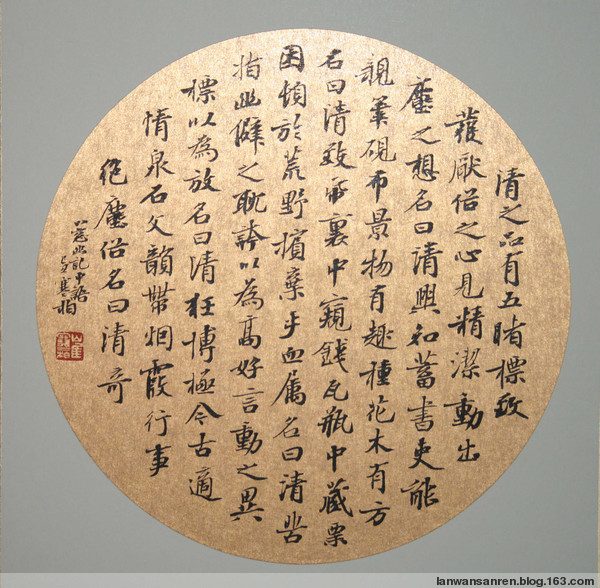 清之品有五睹標致
發厭俗之心見精潔動出
塵之想名曰清興知蓄書史能
親筆硯布景物有趣種花木有方
名曰清致帋裹中窺錢瓦瓶中藏粟
困頓於荒野擯棄乎血属名曰清苦
指幽僻之耽誇以為高好言動之異
標以為放名曰清狂博極今古適
情泉石文韻帶烟霞行事
絕塵俗名曰清奇
小窓幽記中語
寒柏
lanwansanren.blog.163.com